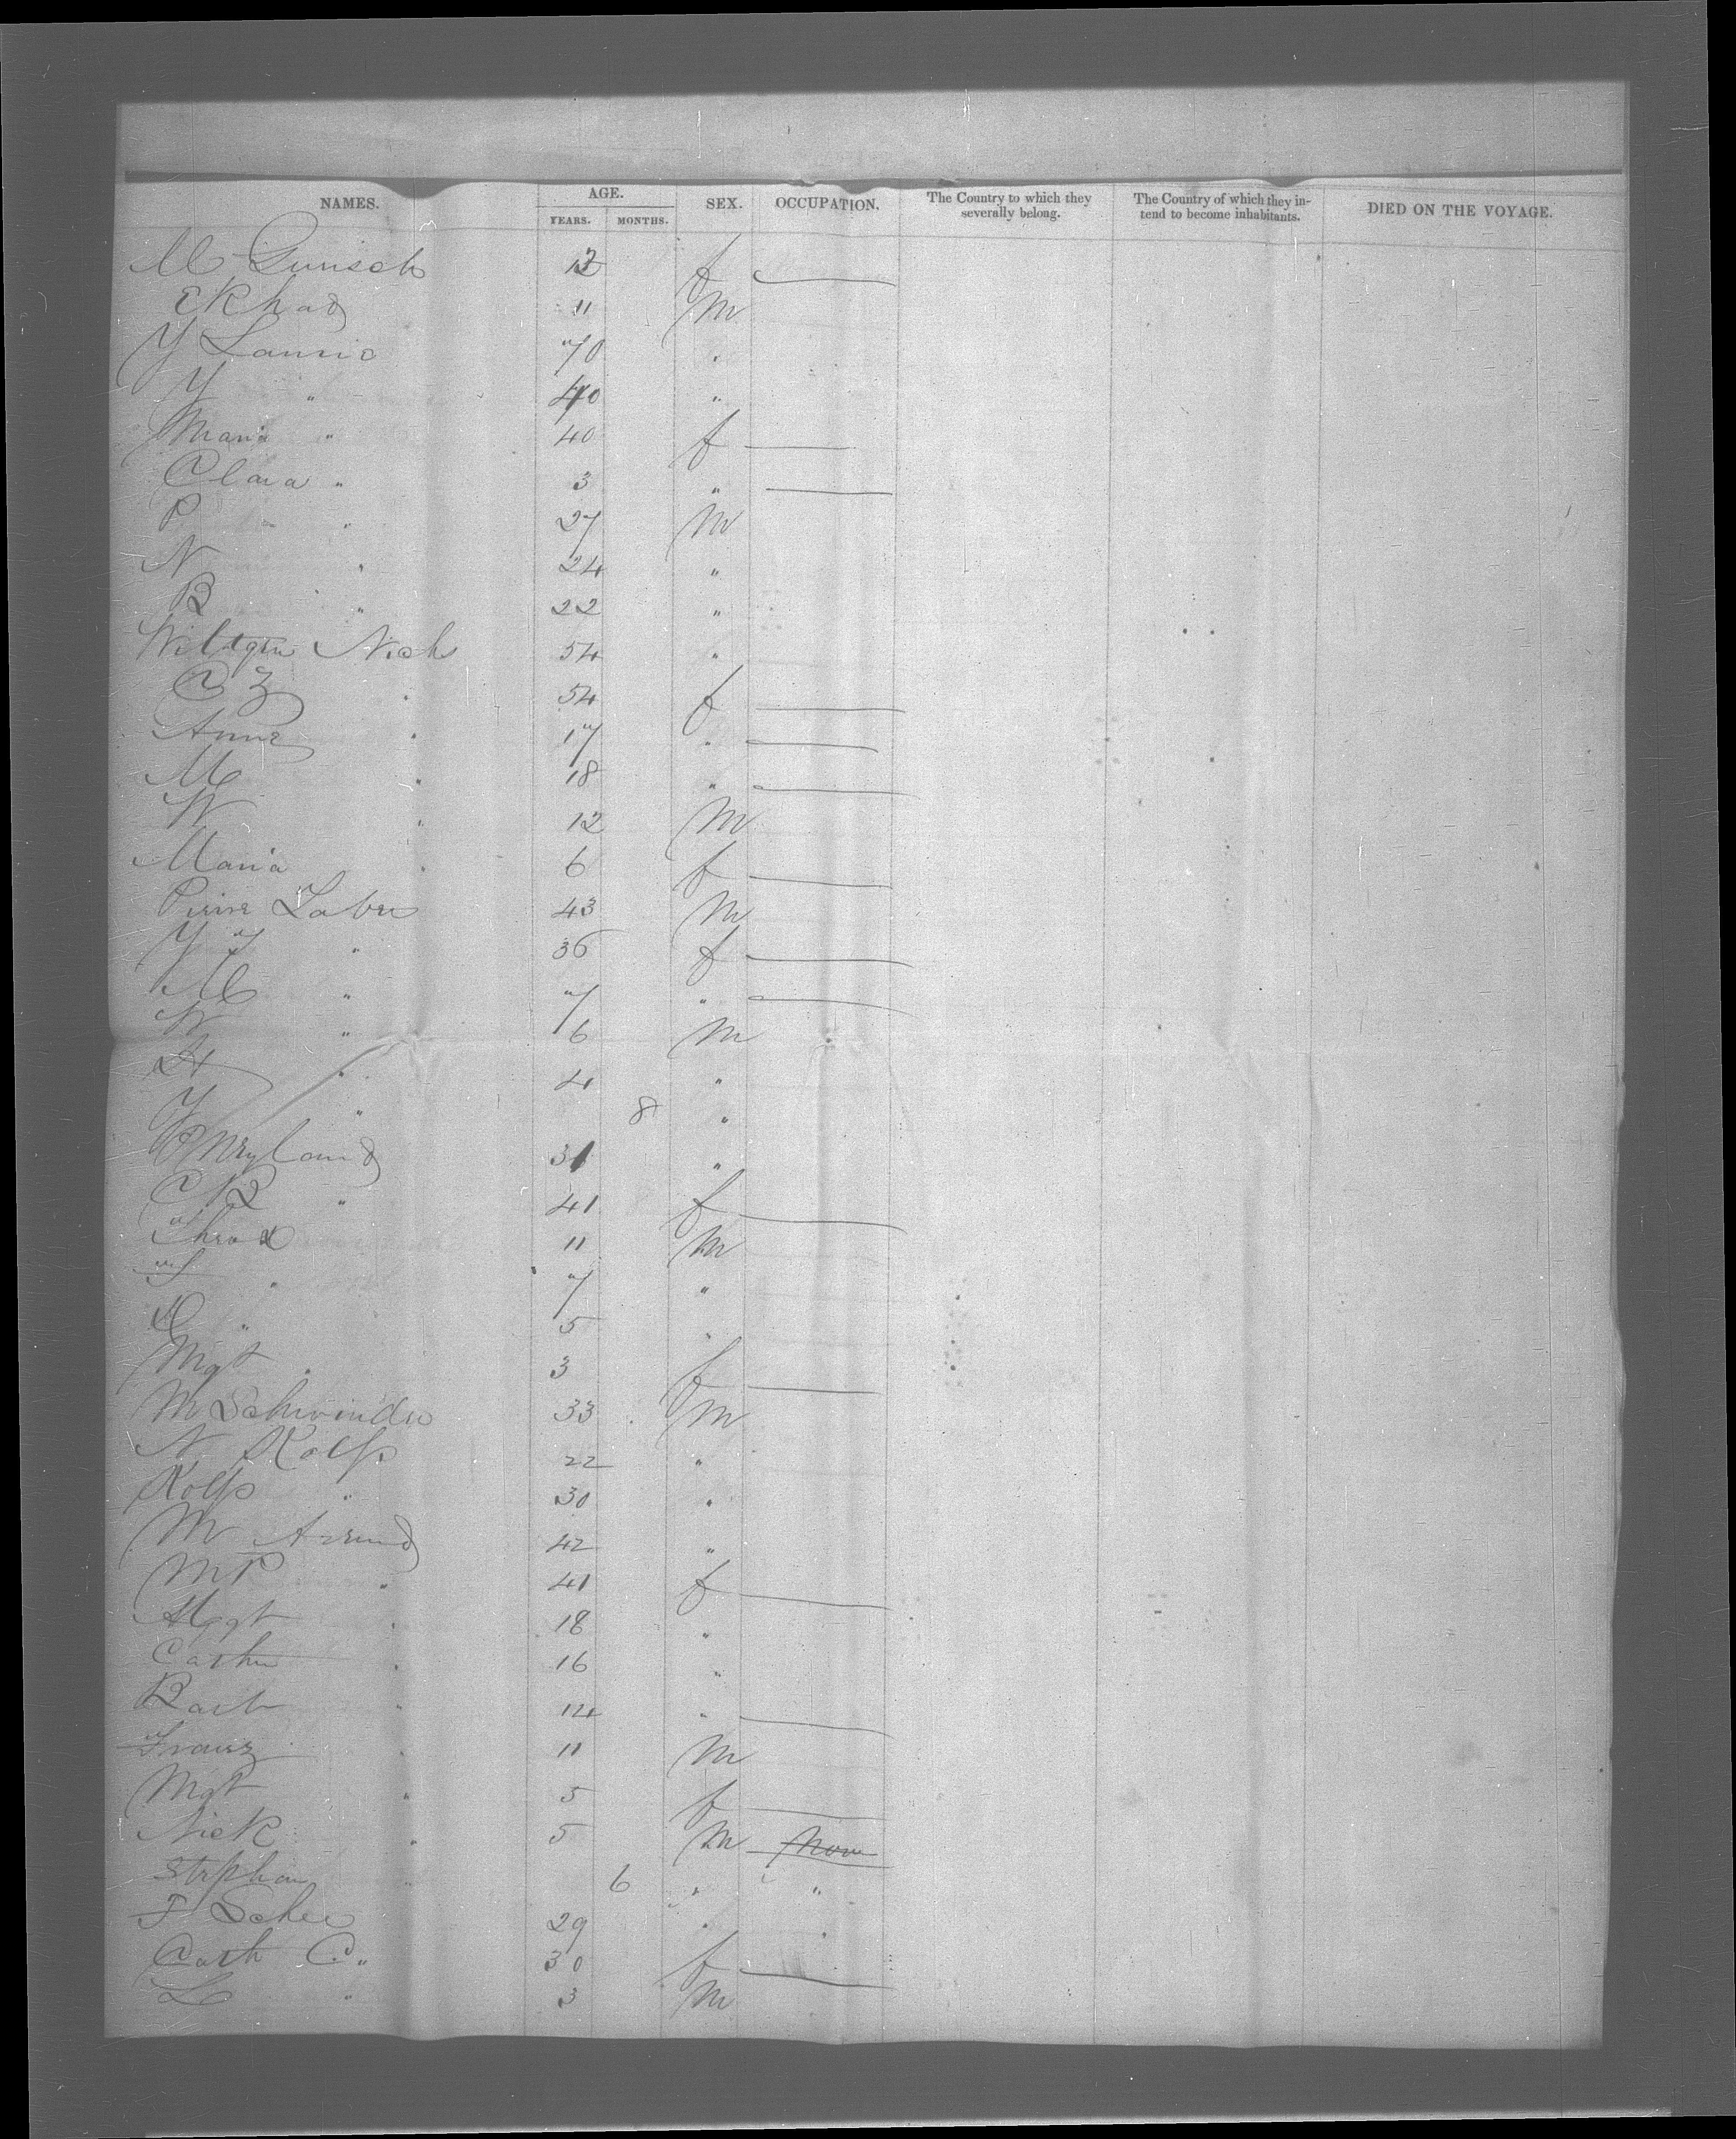 NAMES. AGE. YEARS. MONTHS. SEX. OCCUPATION. The Country to which they severally belong. The Country of which they in-tend to become inhabitants. DIED ON THE VOYAGE.
M Gunsch 12 f
Ekhad 11 m
Y Lannie 70 "
Y " 40 "
Maria " 40 f
Clara " 3 "
P " 27 m
N " 24 "
B " 22 "
Wiltgen Nich 54 "
C Z " 54 f
Anna " 17 "
M " 18 "
W " 12 m
Maria " 6 f
Pierre Laber 43 m
Y " 36 f
M " 7 "
N " 6 m
H " 4 "
Y " 8 "
P Weyland 31 "
C B " 41 f
Theod 11 m
T " 7 "
D " 5 "
Mgt " 3 f
M Schwinder 33 m
N Rolfs 22 "
Rolfs " 30 "
M Arend 42 "
M P " 41 f
Mggt " 18 "
Cathn " 16 "
Barb " 14 "
Franz " 11 m
Mgt " 5 f
Nick " 5 m None
Stephan " 6 " "
F Scher 29 " "
Cath C " 30 f
L " 3 m